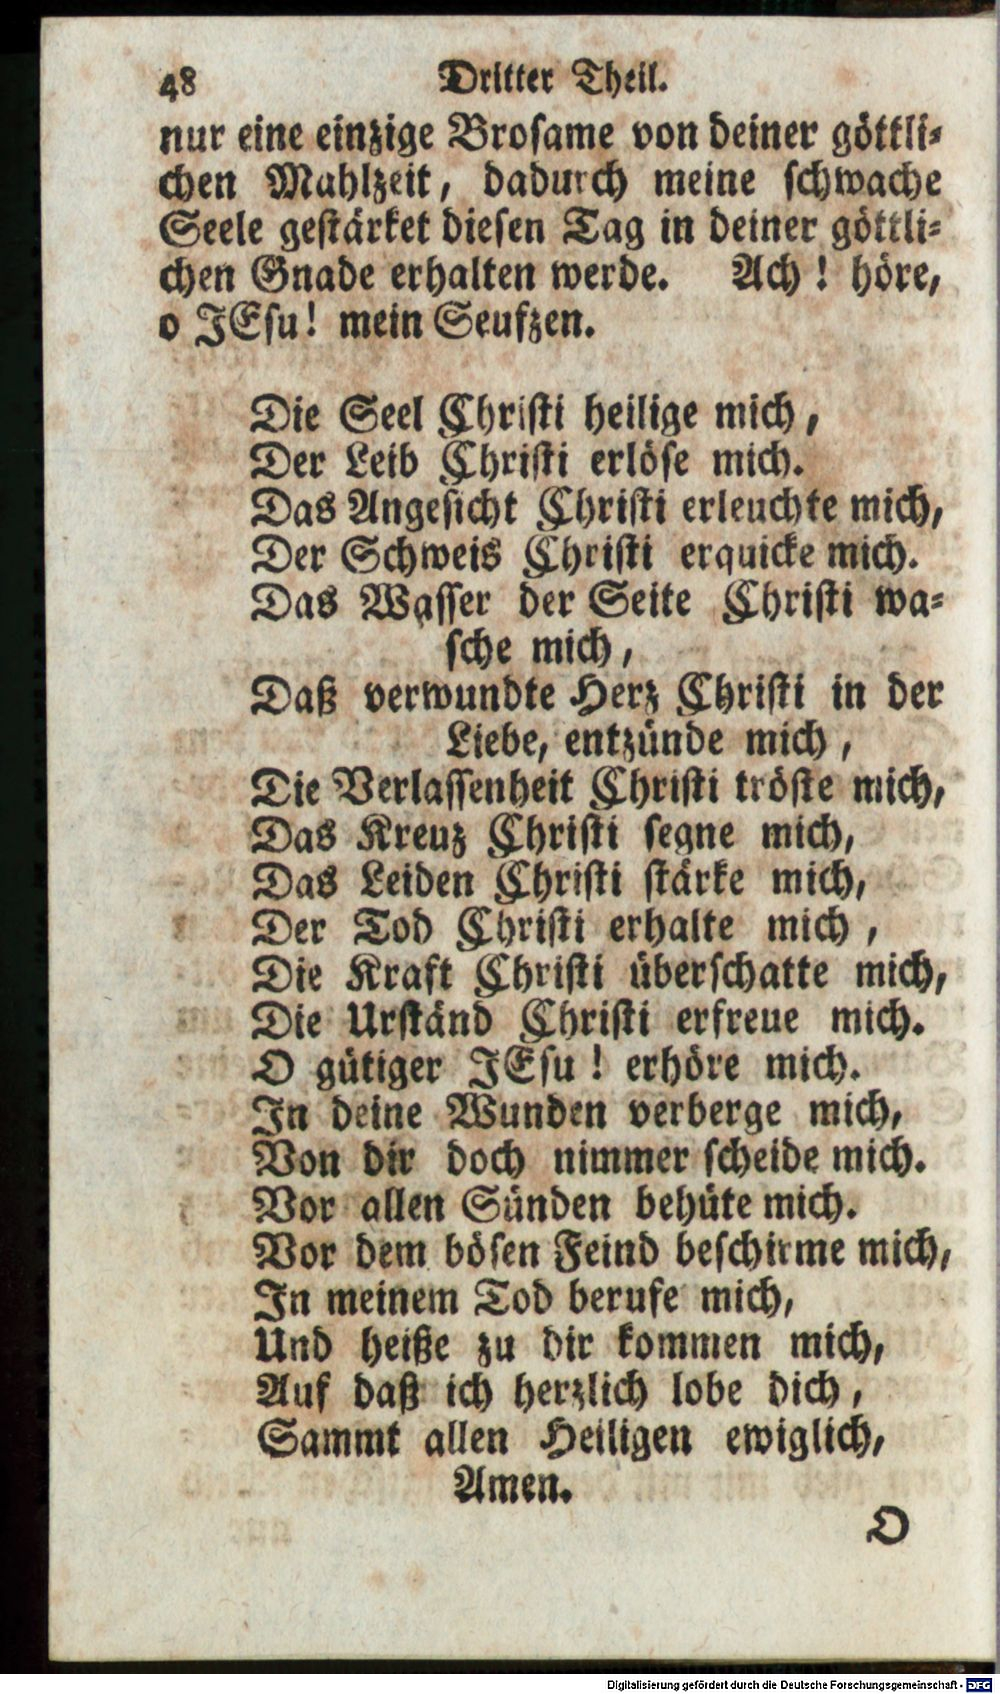 48 Dritter Theil.
nur eine einzige Brosame von deiner göttli-
chen Mahlzeit, dadurch meine schwache
Seele gestärket diesen Tag in deiner göttli-
chen Gnade erhalten werde. Ach! höre,
o JEsu! mein Seufzen.
Die Seel Christi heilige mich,
Der Leib Christi erlöse mich.
Das Angesicht Christi erleuchte mich,
Der Schweis Christi erquicke mich.
Das Wasser der Seite Christi wa-
sche mich,
Daß verwundte Herz Christi in der
Liebe, entzünde mich,
Die Verlassenheit Christi tröste mich,
Das Kreuz Christi segne mich,
Das Leiden Christi stärke mich,
Der Tod Christi erhalte mich,
Die Kraft Christi überschatte mich,
Die Urständ Christi erfreue mich.
O gütiger JEsu! erhöre mich.
In deine Wunden verberge mich,
Von dir doch nimmer scheide mich.
Vor allen Sünden behüte mich.
Vor dem bösen Feind beschirme mich,
In meinem Tod berufe mich,
Und heiße zu dir kommen mich,
Auf daß ich herzlich lobe dich,
Sammt allen Heiligen ewiglich,
Amen.
O
Digitalisierung gefördert durch die Deutsche Forschungsgemeinschaft - DFG